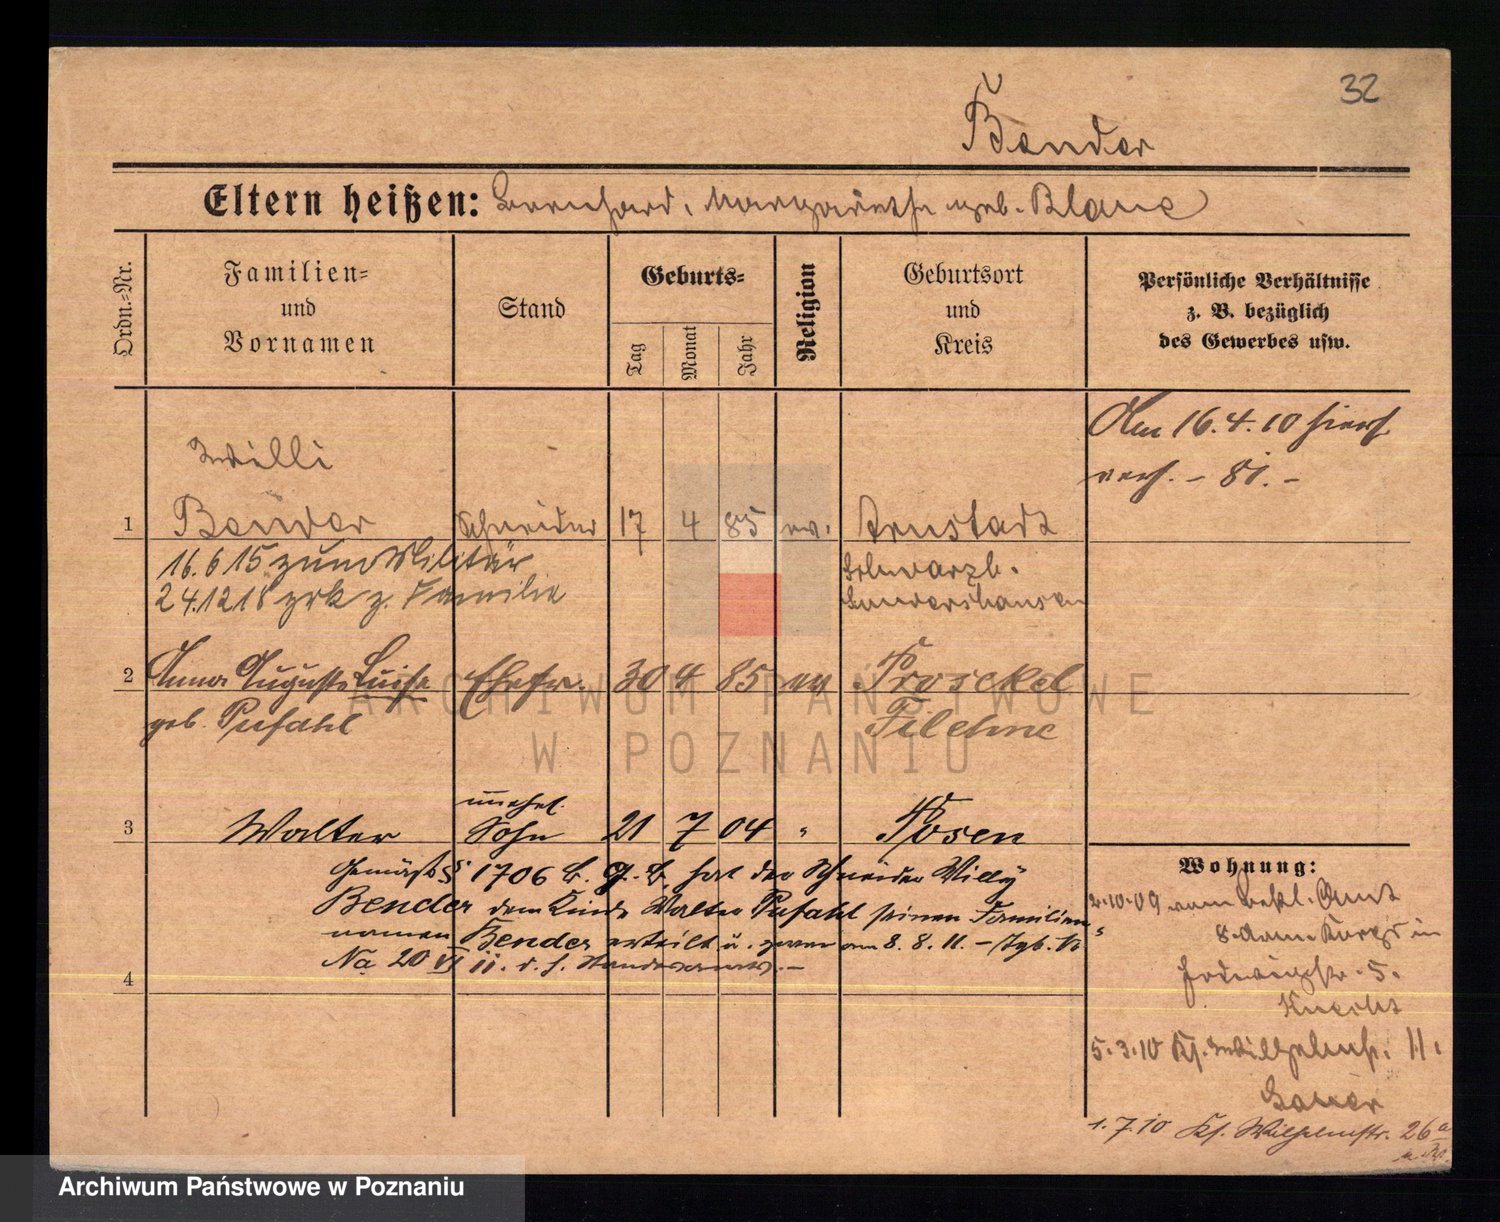 32
Bender
Eltern heißen: Bernhard, Margarethe geb. Blanc
Ordn.=Nr.
Familien=
und
Vornamen
Stand
Geburts=
Tag
Monat
Jahr
Religion
Geburtsort
und
Kreis
Persönliche Verhältnisse
z. B. bezüglich
des Gewerbes usw.
Am 16.4.10 hier
verh. –
Willi
1 Bender Schneider 17 4 85 ev. Arnstadt
16.6 15 zum Militär
24.12 18 zrk z. Familie
Schwarzb.
Sondershausen
2 Anna Auguste Luise Ehefr. 30 4 85 ev Proschel
geb. Pufahl Filehne
unehel.
3 Walter Sohn 21 7 04 " Posen
Gemäß § 1706 B. G. B. hat der Schneider Willy
Bender dem Kinde Walter Pufahl seinen Familien-
namen Bender erteilt u. zwar am 8. 8. 11. – Tgb. No
Na 20 VI 11. d. h. Standesamts. –
4
Wohnung:
2.10.09 vom
in
Hedwigstr. 5.
Knecht
5.3.10 Kl. Wilhelmstr. 11.
Bauer
1.7.10 Kl. Wilhelmstr. 26a
ARCHIWUM PAŃSTWOWE
W POZNANIU
Archiwum Państwowe w Poznaniu